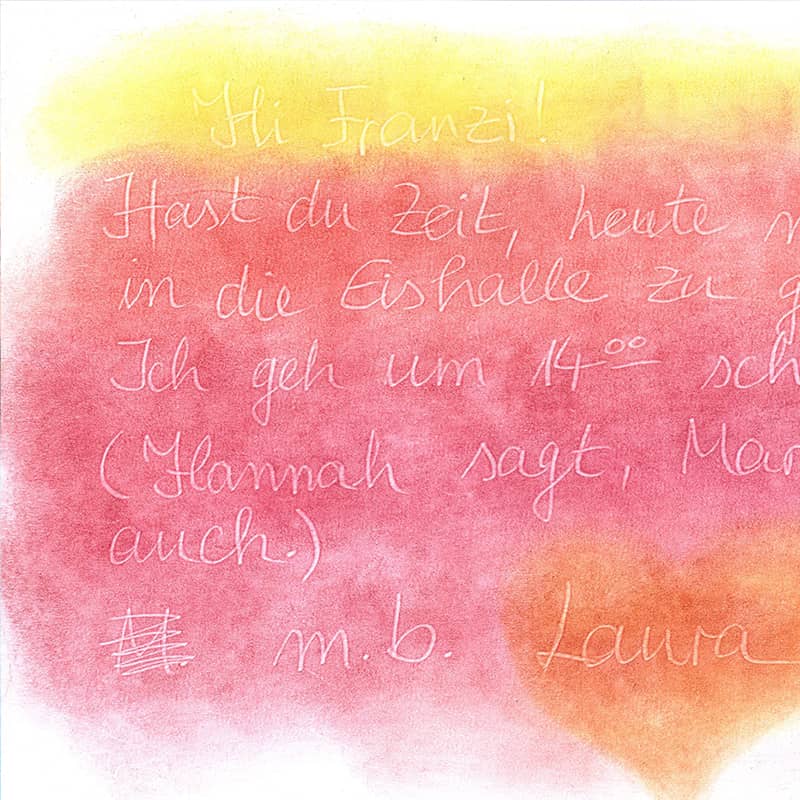 Hi Franzi!
Hast du Zeit, heute
in die Eishalle zu
Ich geh um 14⁰⁰
(Hannah sagt,
auch.)
m.b. Laura